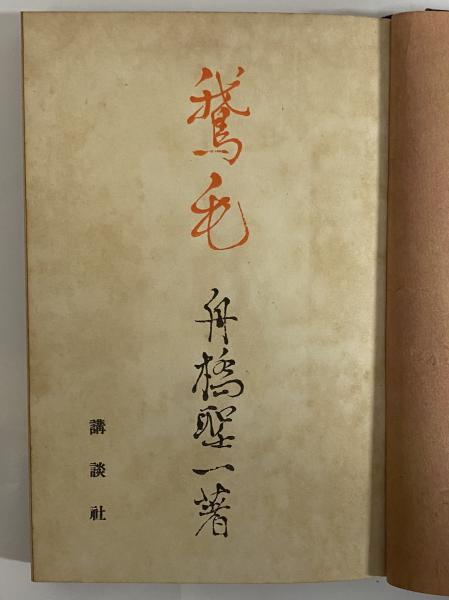 鵞毛
舟橋聖一著
講談社